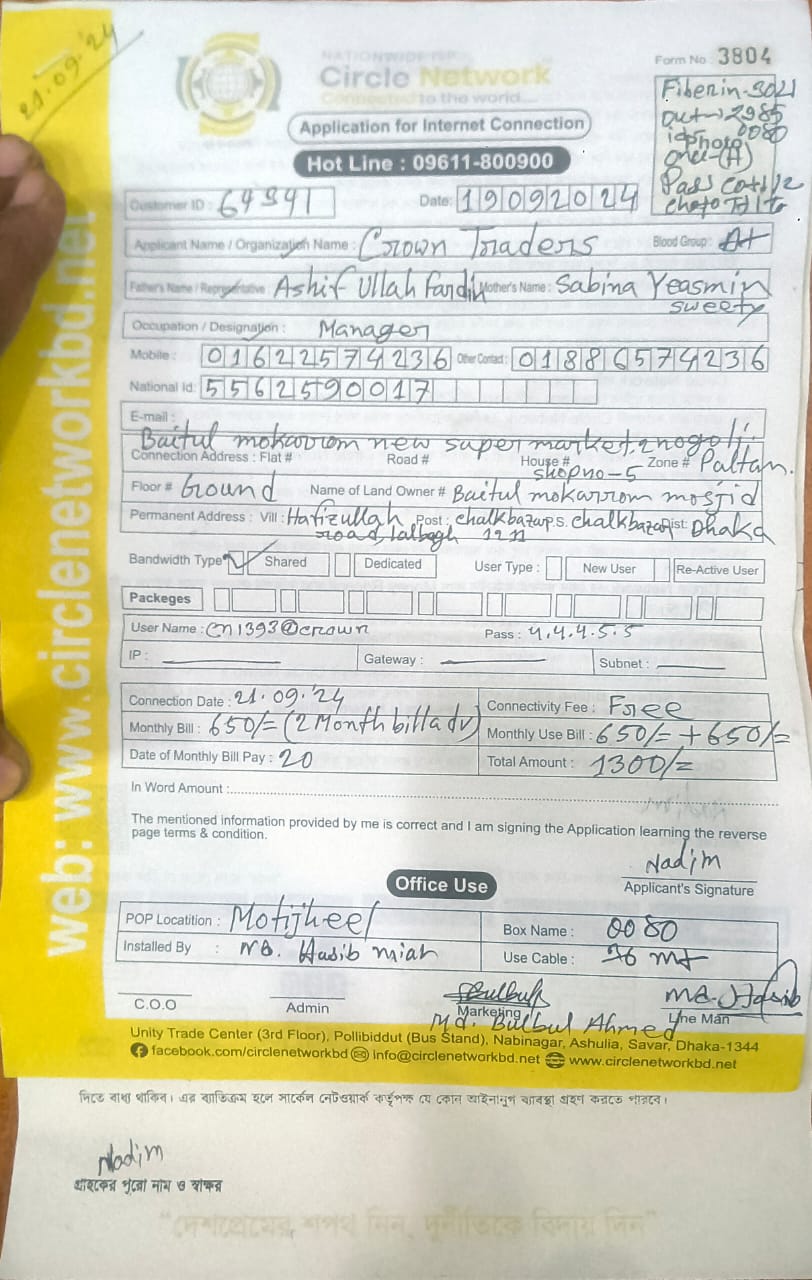 21.09.'24
NATIONWIDE ISP
Circle Network
Connected to the world....
Application for Internet Connection
Hot Line : 09611-800900
Form No 3804
Fiberin-3021
out→2985
0080
(A)
Customer ID : 64341
Date: 19092024
Applicant Name / Organization Name : Crown Traders Blood Group : A+
Father's Name / Representative : Ashif Ullah Fardin Mother's Name : Sabina Yeasmin
sweety
Occupation / Designation : Manager
Mobile : 01622574236 Other Contact : 01886574236
National Id: 5562590017
E-mail :
Baitul mokarrom new super market, 2nogoli.
Connection Address : Flat # Road # House # shopno-5 Zone # Paltan.
Floor # Ground Name of Land Owner # Baitul mokarrom mosjid
Permanent Address : Vill : Hafizullah Post : chalkbazar P.S. chalkbazar Dist: Dhaka
road, lalbagh 1211
Bandwidth Type Shared Dedicated User Type : New User Re-Active User
Packeges
User Name : cn1393@crown Pass : 4.4.4.5.5
IP : Gateway : Subnet :
Connection Date : 21.09.'24 Connectivity Fee : Free
Monthly Bill : 650/= (2 Month bill adv) Monthly Use Bill : 650/= + 650/=
Date of Monthly Bill Pay : 20 Total Amount : 1300/=
In Word Amount :
The mentioned information provided by me is correct and I am signing the Application learning the reverse
page terms & condition.
Nadim
Applicant's Signature
Office Use
POP Locatition : Motijheel Box Name : 0080
Installed By : MD. Hasib miah Use Cable : 76 mt
C.O.O Admin Marketing Line Man
Md. Bulbul Ahmed
Unity Trade Center (3rd Floor), Pollibiddut (Bus Stand), Nabinagar, Ashulia, Savar, Dhaka-1344
facebook.com/circlenetworkbd info@circlenetworkbd.net www.circlenetworkbd.net
web: www.circlenetworkbd.net
দিতে বাধ্য থাকিব। এর ব্যতিক্রম হলে সার্কেল নেটওয়ার্ক কর্তৃপক্ষ যে কোন আইনানুগ ব্যবস্থা গ্রহণ করতে পারবে।
Nadim
গ্রাহকের পুরো নাম ও স্বাক্ষর
"দেশপ্রেমের শপথ নিন, দুর্নীতিকে বিদায় দিন"